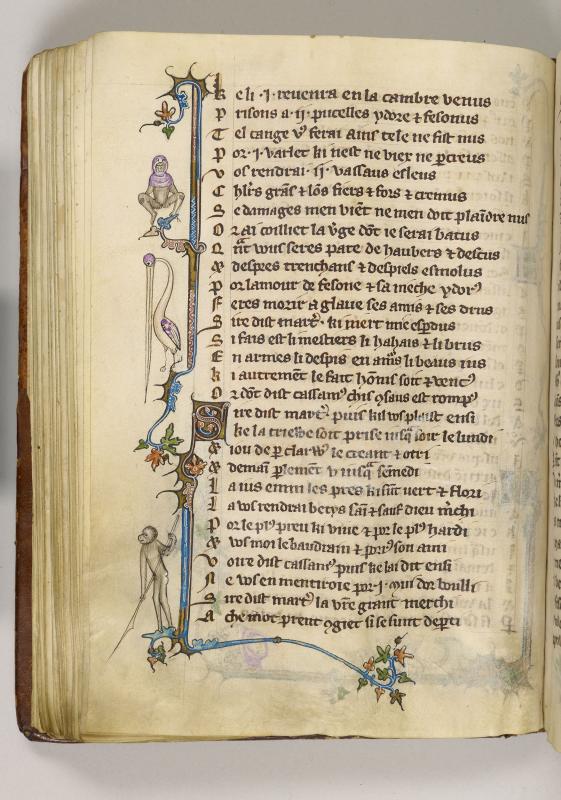 K e li · j · reuenra en la cambre uenus
P risons a · ij · pucelles ydore & fesonus
T el cange vꝰ ferai ains tele ne fist nus
P or · j · varlet ki nest ne viex ne
v os rendrai · ij · vassaus esleus
C hlrs grãs & lõs fiers & fors & cremus
S e damages men viẽt ne men doit plaindre nus
O r ai coilliet la dõt ie serai batus
Q nt wus seres pare de haubers & descus
& despees trenchans & despiels esmolus
P or lamour de fesone & sa nieche ydorꝰ
F eres morir a glaue ses amis & ses drus
S ire dist ki niert mie
S i fais est li mestiers li hahais & li brus
E n armes li despis en amrs li beaus ius
k i autrement le fait hõnis soit &
O r dõt dist cassamꝰ est
S ire dist puis kil vꝰ plaist ensi
ke la triewe soit prise soit le lundi
& iou de le creant & otri
& demaĩ plement v
L a ius enmi les pres ki sũt uert & flori
L a wꝰ rendrai betys saĩ & sauf dieu mchi
P or le plꝰ preu ki viue & por le plꝰ hardi
& wꝰ moi le baudrain & son ami
v oire dist cassamꝰ puis ke lai dit ensi
N e wꝰ en mentiroie por · j · dor boulli
S ire dist la vre grant merchi
A che mot prent ꝯgiet si se sunt departi